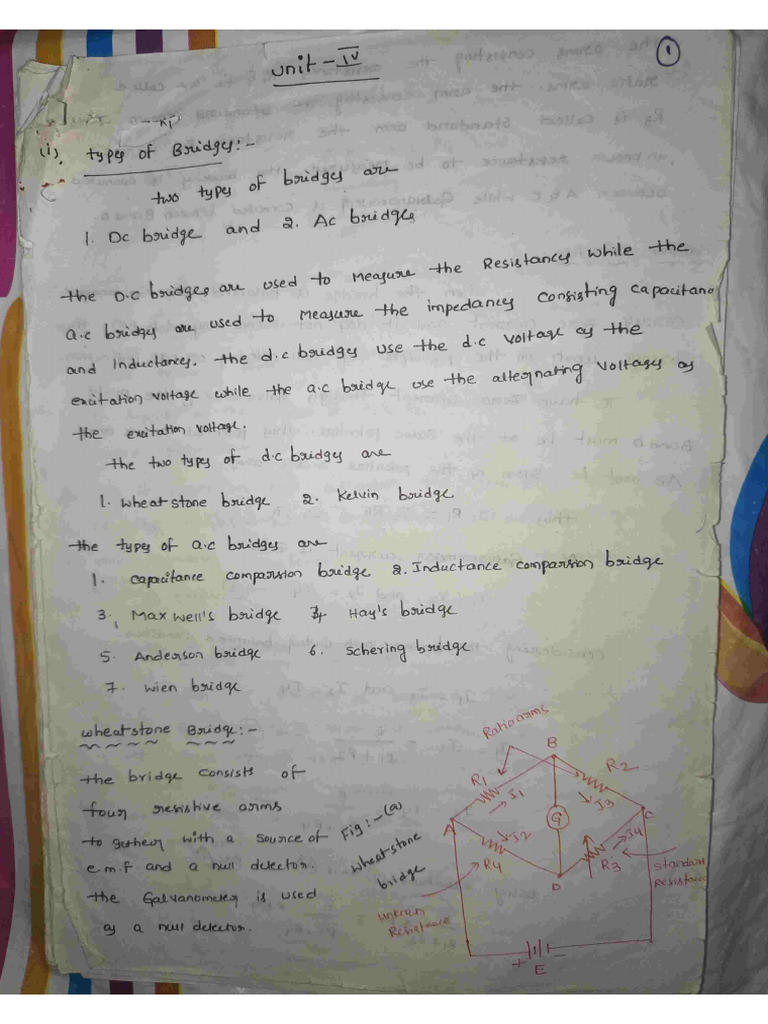 unit - IV
1
(i). types of Bridges:-
two types of bridges are
1. Dc bridge and 2. Ac bridges
the D.C bridges are used to Measure the Resistances while the
a.c bridges are used to Measure the impedances consisting capacitanc
and Inductances. the d.c bridges use the d.c voltage as the
excitation voltage while the a.c bridge use the alternating voltages as
the excitation voltage.
the two types of d.c bridges are
1. wheatstone bridge 2. Kelvin bridge
the types of a.c bridges are
1. capacitance comparsion bridge 2. Inductance comparsion bridge
3. Maxwell's bridge 4 Hay's bridge
5. Anderson bridge 6. Schering bridge
7. wien bridge
wheatstone Bridge:-
the bridge consists of
four resistive arms
to gether with a source of
e.m.f and a null detector.
the Galvanometer is used
as a null detector.
Fig:-(a)
wheatstone
bridge
Ratio arms
B
R1
R2
I1
I3
A
G
C
I2
I4
R4
D
R3
standard
Resistance
unknown
Resistance
+
E
-